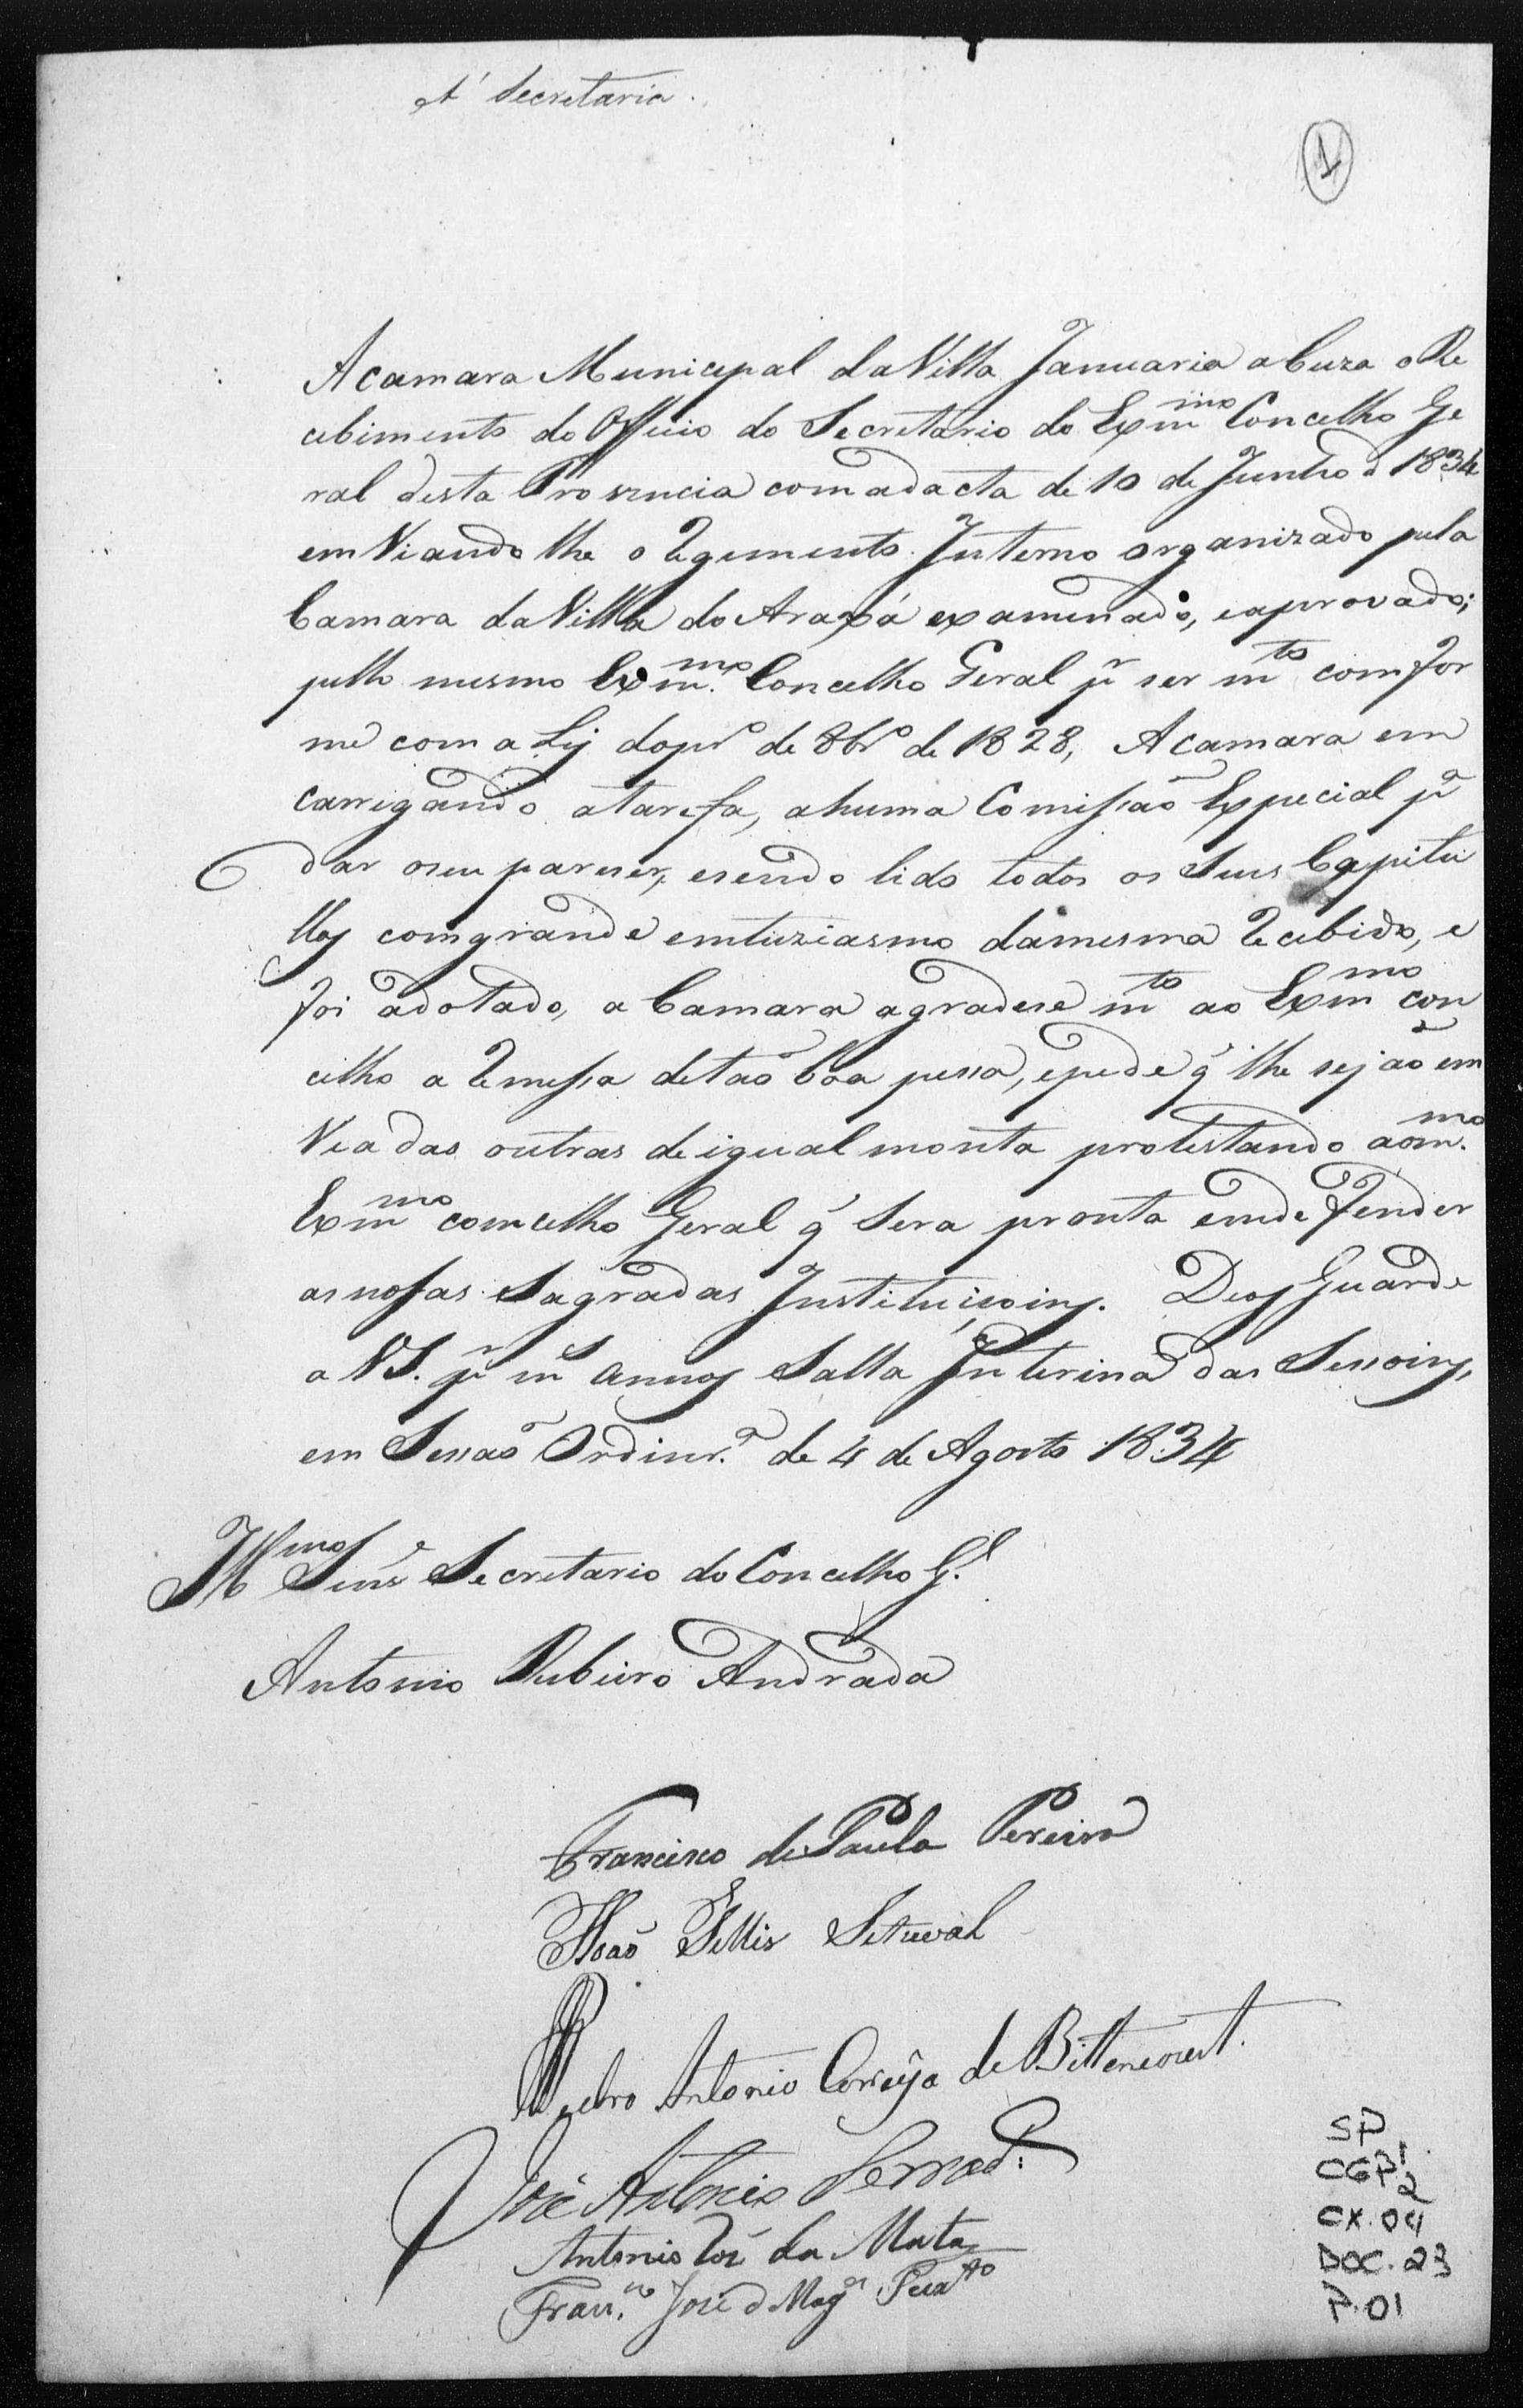 A' Secretaria.
1
A camara Municipal da Villa Januaria abuza o Re
cebimento do Officio do Secretario do Exmmo Concelho Ge
ral desta Provincia com a dacta de 10 de Junho d 1834
em Viando lhe o Regimento Interno organizado pela
Camara da Villa do Araxá examinado, e aprovado;
pello mesmo Exmmo. Concelho Geral pr ser mto comfor
me com a Ley do pro de 8bro de 1828, A camara em
carregando a tarefa, a huma Comissão Especial pa
dar o seu pareser, e sendo lido todos os Seus Capitu
llos com grande emtuziasmo da mesma Recebido, e
foi adotado, a Camara agradese mto ao Exmmo con
celho a Remessa de tão boa pessa, e pede q' lhe sejão em
Viadas outras de igual monta protestando ao mmo.
Exmmo comcelho Geral q' Sera pronta em defender
as nossas Sagradas Instituiçoins. Deos Guarde
a VS. pr ms annos Salla Interina das Sessoins,
em Sessão Ordinr.a de 4 de Agosto 1834
Illmo Senr Secretario do Concelho G.l
Antonio Ribeiro Andrada
Francisco de Paula Pereira
João Tellis Setuval
Pedro Antonio Correya de Bittencourt.
José Antonio Serrad:
Antonio José da Mata
Fran.co José d Mag
SP
CGP1 2
CX.04
DOC.23
P.01